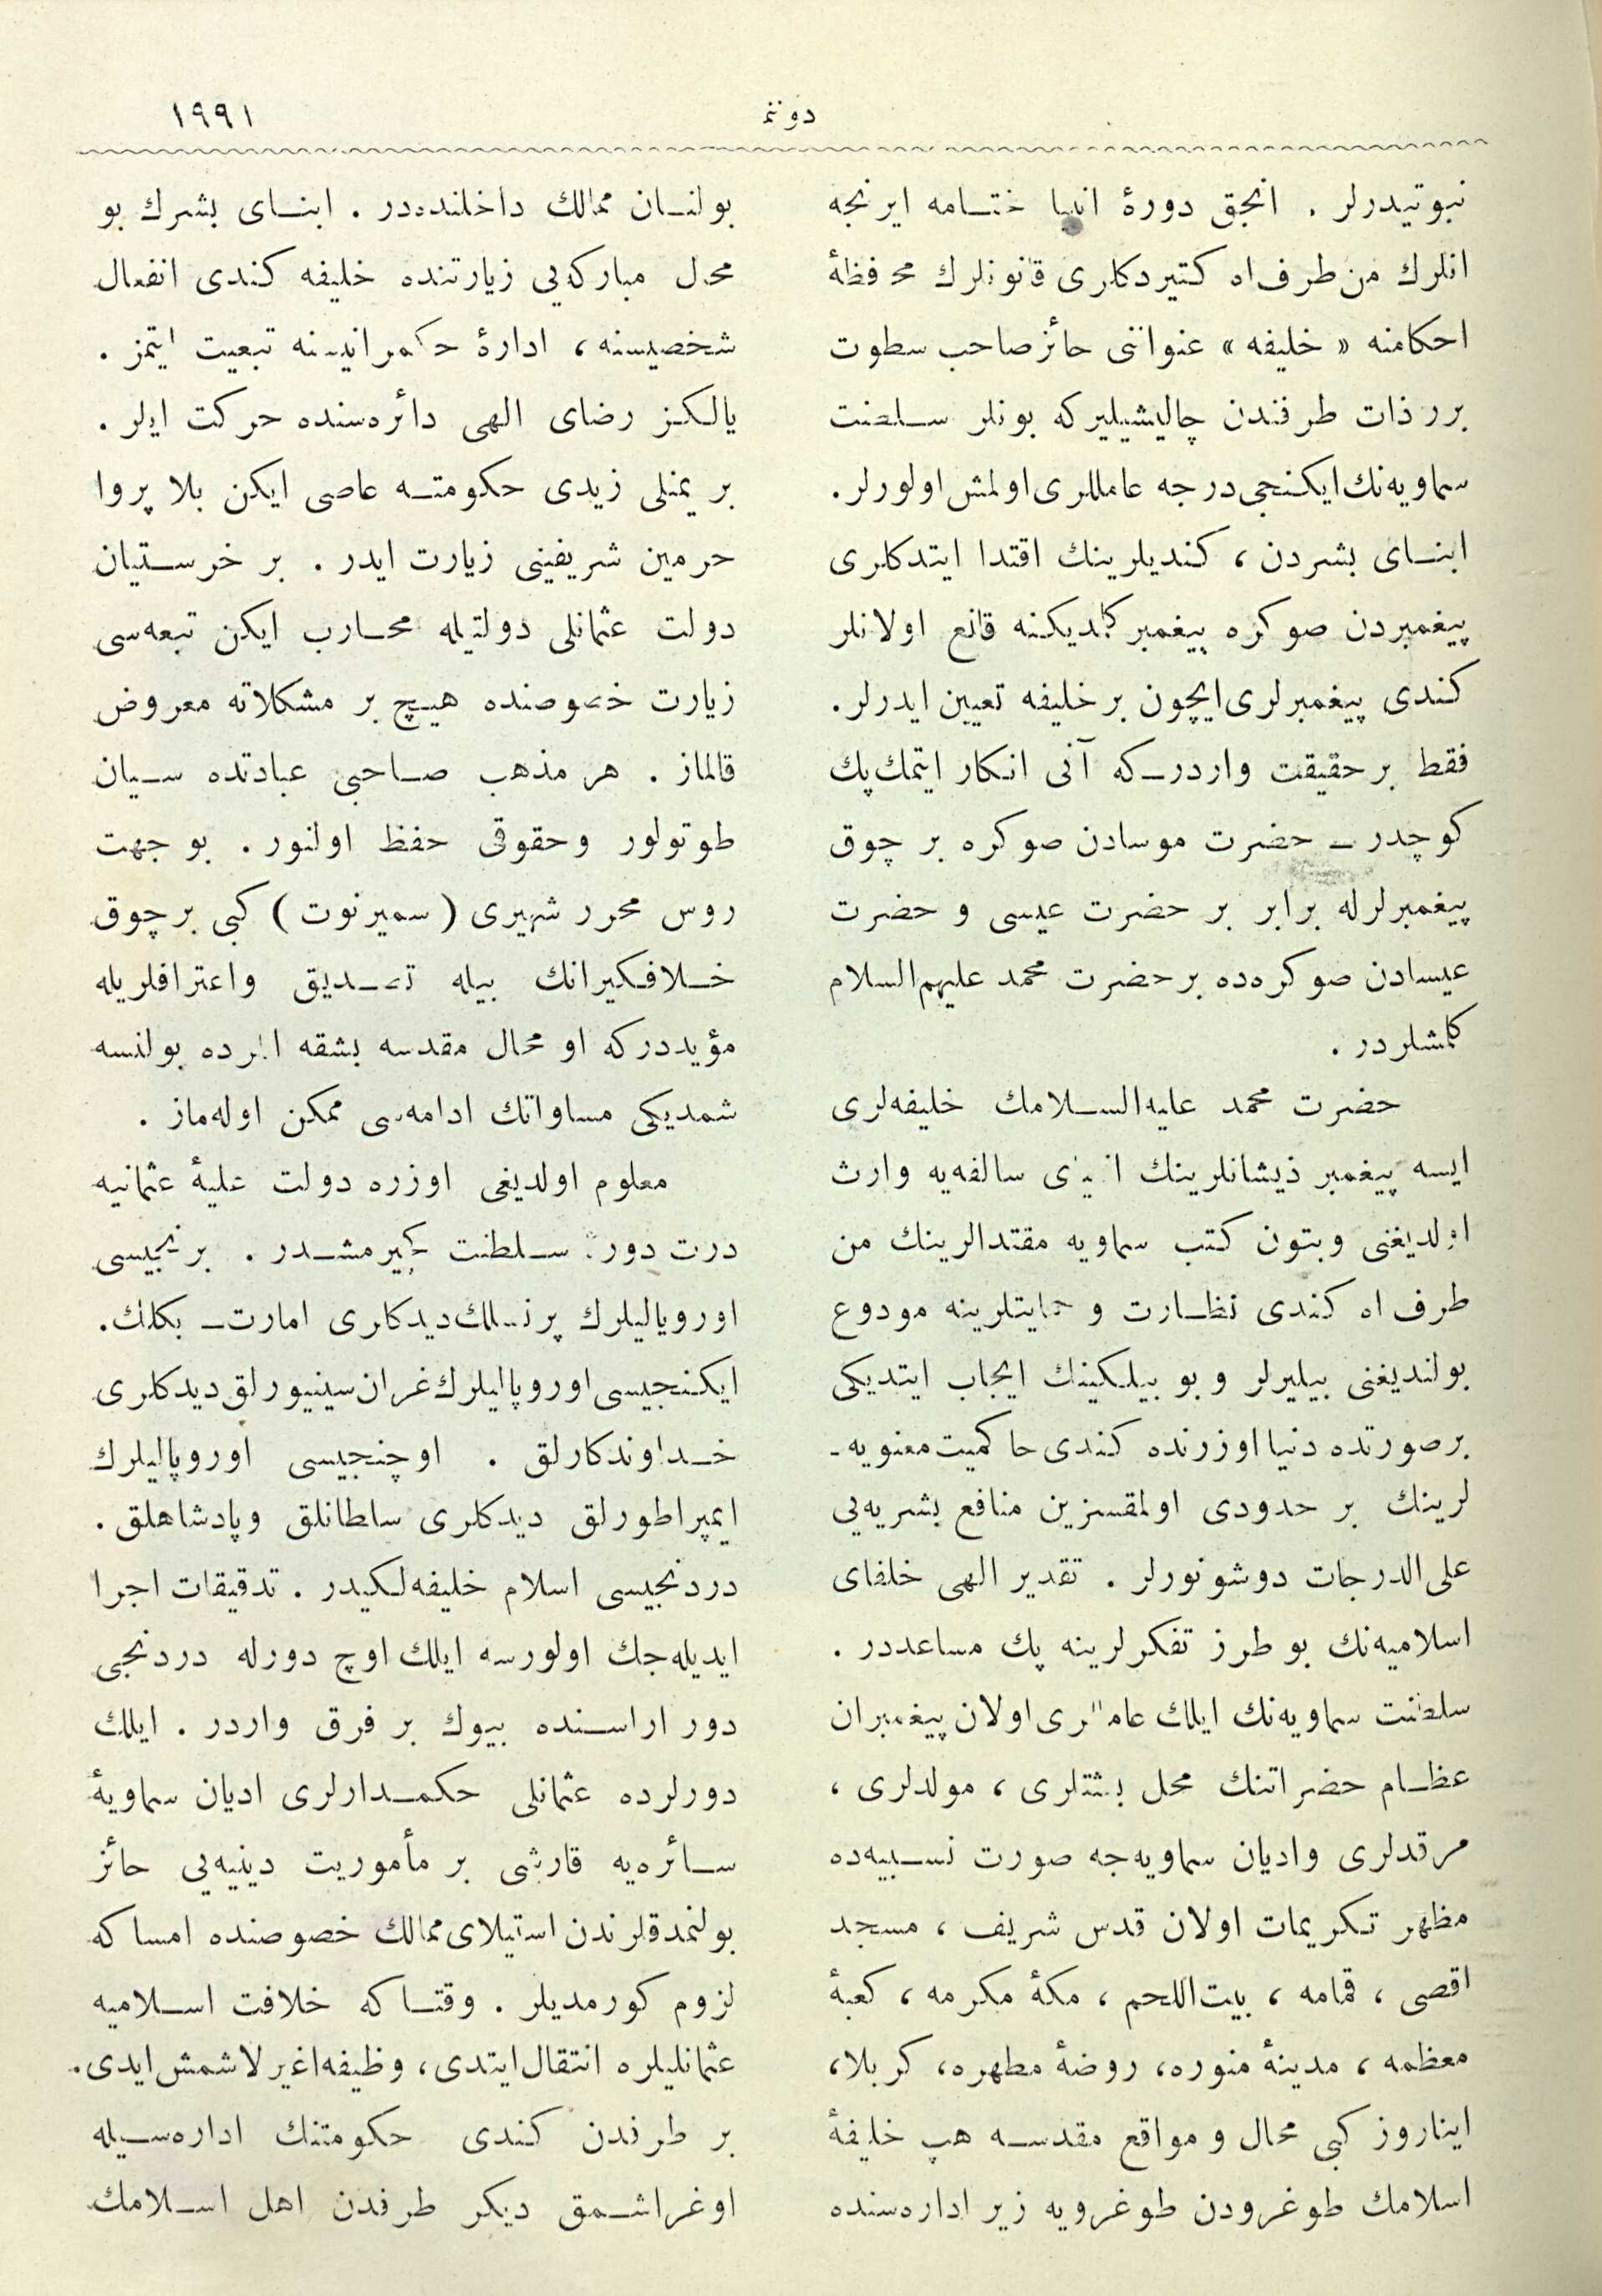 دوننمه
١٩٩١
نبوتيدرلر . انجق دورۀ انبيا ختـامه ايرنجه
انلرك من طرف اه كتيردكلرى قانونلرك محافظۀ
احكامنه « خليفه » عنوانى حائز صاحب سطوت
برر ذات طرفندن چاليشيليركه بونلر سـلطنت
سماويه‌نك ايكنجى درجه عامللرى اولمش اولورلر .
ابنـاى بشردن ، كنديلرينك اقتدا ايتدكلرى
پيغمبردن صوكره پيغمبر كلديكنه قانع اولانلر
كندى پيغمبرلرى ايچون بر خليفه تعيين ايدرلر .
فقط بر حقيقت واردرـ كه آنى انكار ايتمك پك
كوچدر ـ حضرت موسادن صوكره بر چوق
پيغمبرلرله برابر بر حضرت عيسى و حضرت
عيسادن صوكره‌ده بر حضرت محمد عليهم السلام
كلمشلردر .
حضرت محمد عليه السـلامك خليفه‌لرى
ايسه پيغمبر ذيشانلرينك انبياى سالفه‌يه وارث
اولديغنى وبتون كتب سماويه مقتدالرينك من
طرف اه كندى نظـارت و حمايتلرينه مودوع
بولنديغنى بيليرلر و بو بيلكينك ايجاب ايتديكى
بر صورتده دنيا اوزرنده كندى حاكميت معنويه ـ
لرينك بر حدودى اولمقسزين منافع بشريه‌يى
على الدرجات دوشونورلر . تقدير الهى خلفاى
اسلاميه‌نك بو طرز تفكرلرينه پك مساعددر .
سلطنت سماويه‌نك ايلك عامللرى اولان پيغمبران
عظـام حضراتنك محل بعثتلرى ، مولدلرى ،
مرقدلرى واديان سماويه‌جه صورت نسـبيه‌ده
مظهر تكريمات اولان قدس شريف ، مسجد
اقصى ، قمامه ، بيت اللحم ، مكۀ مكرمه ، كعبۀ
معظمه ، مدينۀ منوره ، روضۀ مطهره ، كربلا ،
ايناروز كبى محال و مواقع مقدسـه هپ خليفۀ
اسلامك طوغرودن طوغرويه زير اداره‌سنده
بولنـان ممالك داخلنده‌در . ابنـاى بشرك بو
محل مباركه‌يى زيارتنده خليفه كندى انفعال
شخصيسنه ، ادارۀ حكمرانيسنه تبعيت ايتمز .
يالكز رضاى الهى دائره‌سنده حركت ايلر .
بر يمنلى زيدى حكومتـه عاصى ايكن بلا پروا
حرمين شريفينى زيارت ايدر . بر خرسـتيان
دولت عثمانلى دولتيله محـارب ايكن تبعه‌سى
زيارت خصوصنده هيچ بر مشكلاته معروض
قالماز . هر مذهب صـاحبى عبادتده سـيان
طوتولور وحقوقى حفظ اولنور . بو جهت
روس محرر شهيرى ( سميرنوت ) كبى بر چوق
خـلافكيرانك بيله تصـديق واعترافلريله
مؤيددركه او محال مقدسه بشقه الرده بولنسه
شمديكى مساواتك ادامه‌سى ممكن اوله‌ماز .
معلوم اولديغى اوزره دولت عليۀ عثمانيه
درت دورۀ سـلطنت كچيرمشـدر . برنجيسى
اوروپاليلرك پرنسلك ديدكلرى امارت ـ بكلك .
ايكنجيسى اوروپاليلرك غران سينيورلق ديدكلرى
خـداوندكارلق . اوچنجيسى اوروپاليلرك
ايمپراطورلق ديدكلرى سلطانلق وپادشاهلق .
دردنجيسى اسلام خليفه‌لكيدر . تدقيقات اجرا
ايديله‌جك اولورسه ايلك اوچ دورله دردنجى
دور اراسـنده بيوك بر فرق واردر . ايلك
دورلرده عثمانلى حكمـدارلرى اديان سماويۀ
سـائره‌يه قارشى بر مأموريت دينيه‌يى حائز
بولنمدقلرندن استيلاى ممالك خصوصنده امساكه
لزوم كورمديلر . وقتـا كه خلافت اسـلاميه
عثمانليلره انتقال ايتدى ، وظيفه اغيرلاشمش ايدى .
بر طرفدن كندى حكومتنك اداره‌سـيله
اوغراشـمق ديكر طرفدن اهل اسـلامك